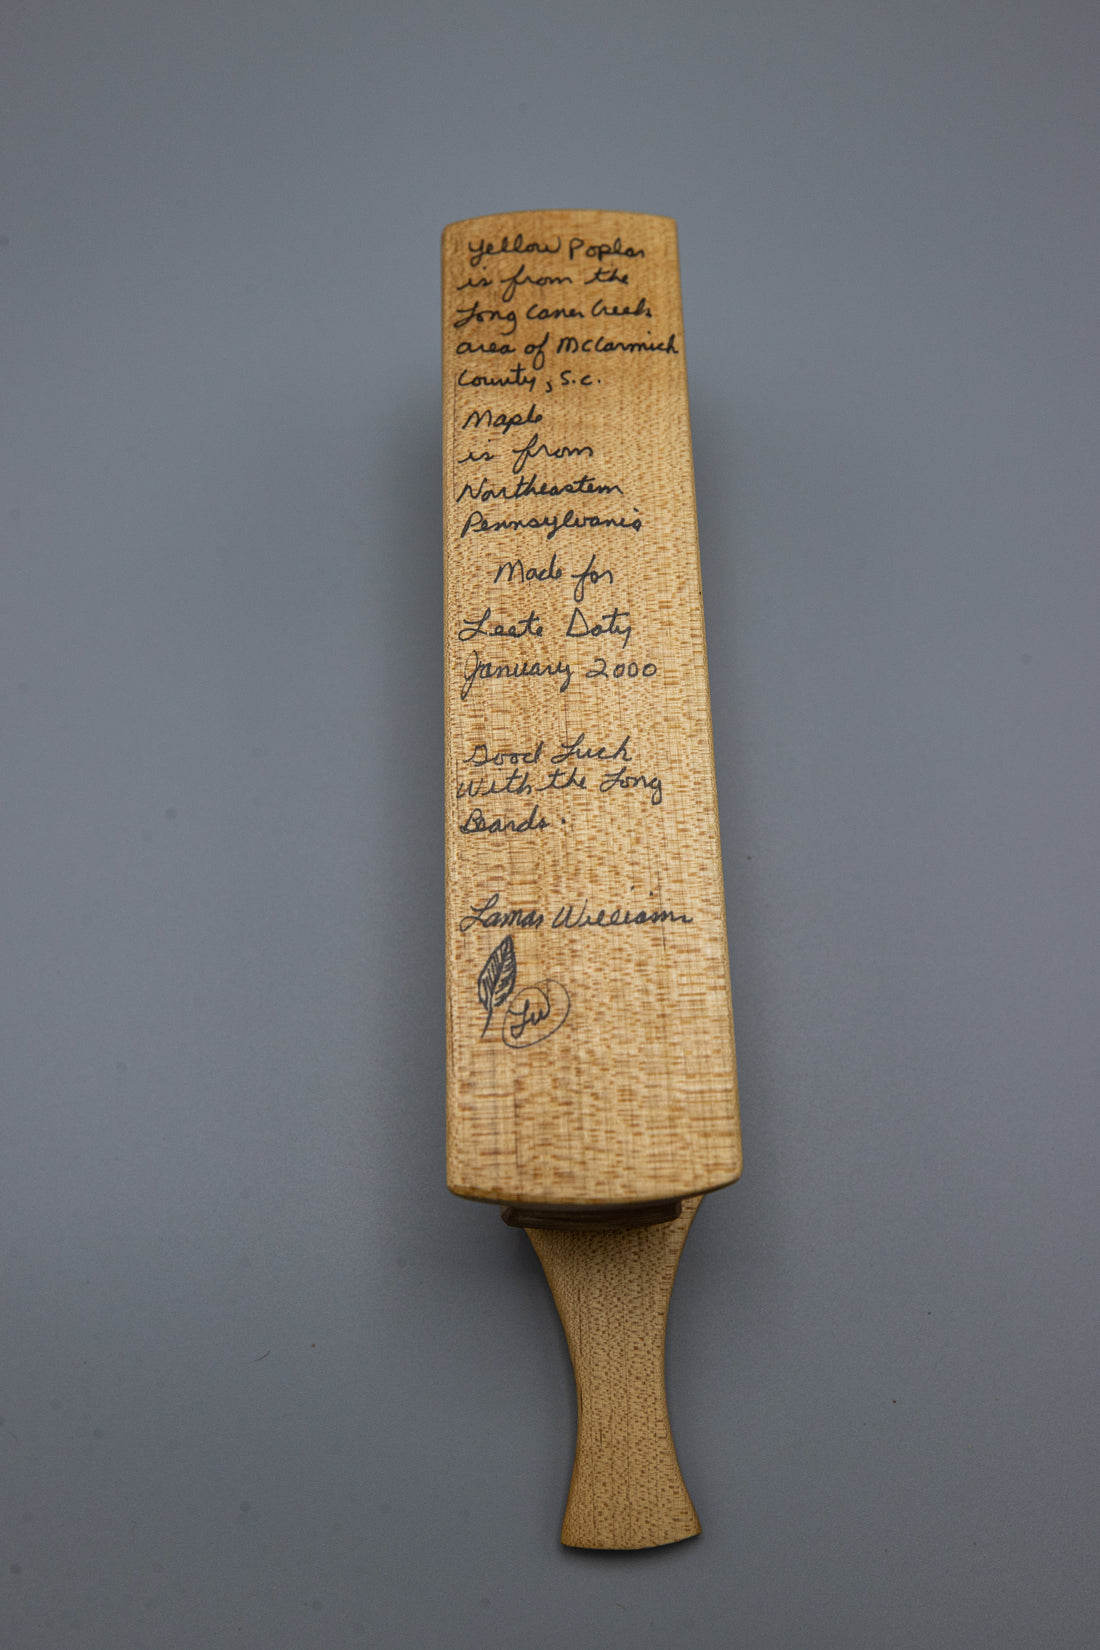 Yellow Poplar
is from the
Long Canes Creek
area of McCormick
County, S.C.
Maple
is from
Northeastern
Pennsylvania
Made for
Leete Doty
January 2000
Good Luck
With the Long
Beards.
Lamar Williams
LW